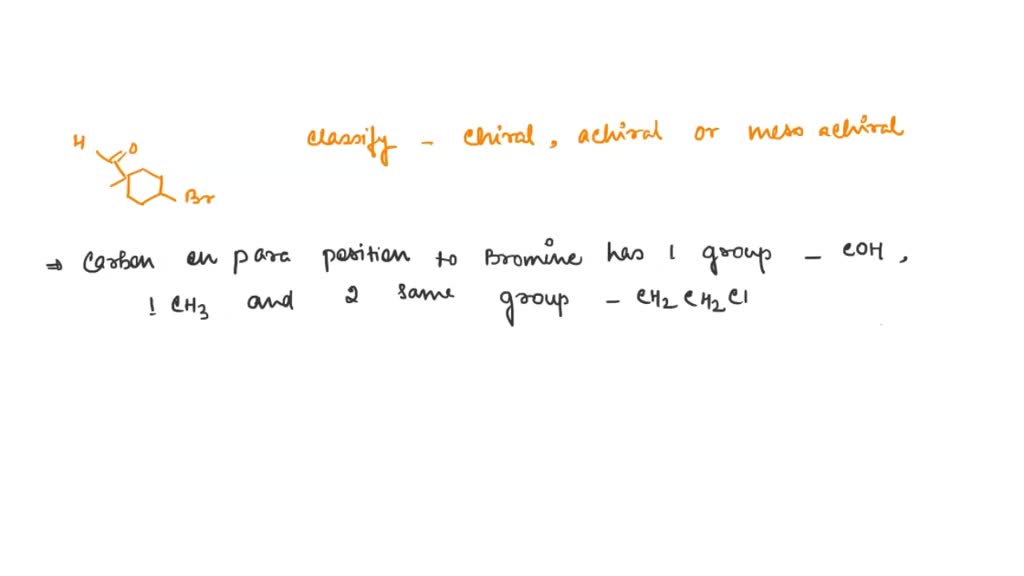 classify - chiral, achiral or meso achiral
H
O
Br
⇒ Carbon en para position to Bromine has 1 group - COH,
1 CH3 and 2 same group - CH2 CH2 Cl